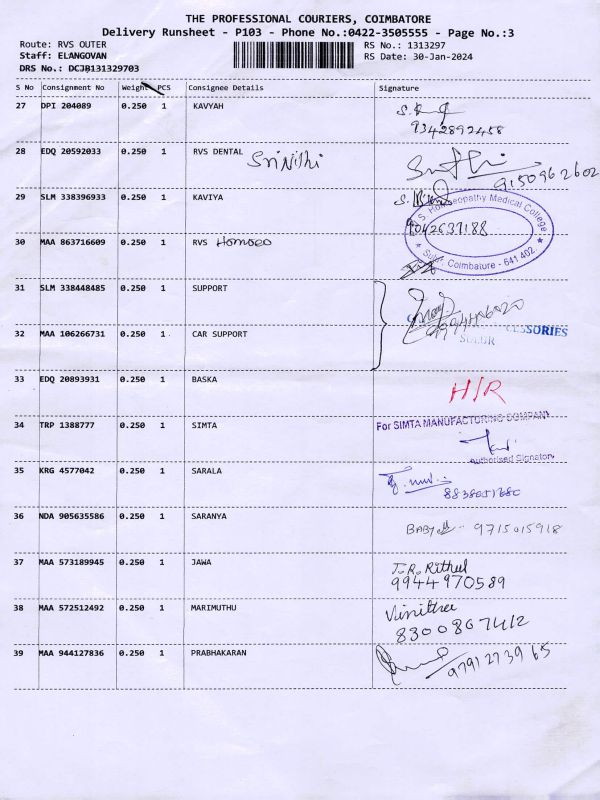 THE PROFESSIONAL COURIERS, COIMBATORE
Delivery Runsheet - P103 - Phone No.:0422-3505555 - Page No.:3
Route: RVS OUTER RS No.: 1313297
Staff: ELANGOVAN RS Date: 30-Jan-2024
DRS No.: DCJB131329703
S No Consignment No Weight PCS Consignee Details Signature
27 DPI 204089 0.250 1 KAVYAH
9342892458
28 EDQ 20592033 0.250 1 RVS DENTAL Srinithi
9150962602
29 SLM 338396933 0.250 1 KAVIYA
S. Homoeopathy Medical College
9042637188
30 MAA 863716609 0.250 1 RVS Homoeo
Sulur, Coimbatore - 641 402.
31 SLM 338448485 0.250 1 SUPPORT
32 MAA 106266731 0.250 1 CAR SUPPORT
CESSORIES
SULUR
33 EDQ 20893931 0.250 1 BASKA H/R
34 TRP 1388777 0.250 1 SIMTA For SIMTA MANUFACTURING COMPANY
Authorised Signatory
35 KRG 4577042 0.250 1 SARALA
8838051680
36 NDA 905635586 0.250 1 SARANYA BABY 9715015918
37 MAA 573189945 0.250 1 JAWA T.R. Rithul
9944970589
38 MAA 572512492 0.250 1 MARIMUTHU Vinithra
8300867412
39 MAA 944127836 0.250 1 PRABHAKARAN 9791273965